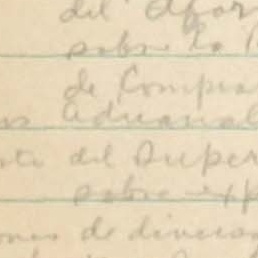 del Afor
sobre la
de Compra
Aduanal
del Super
sobre exp
ones de divers